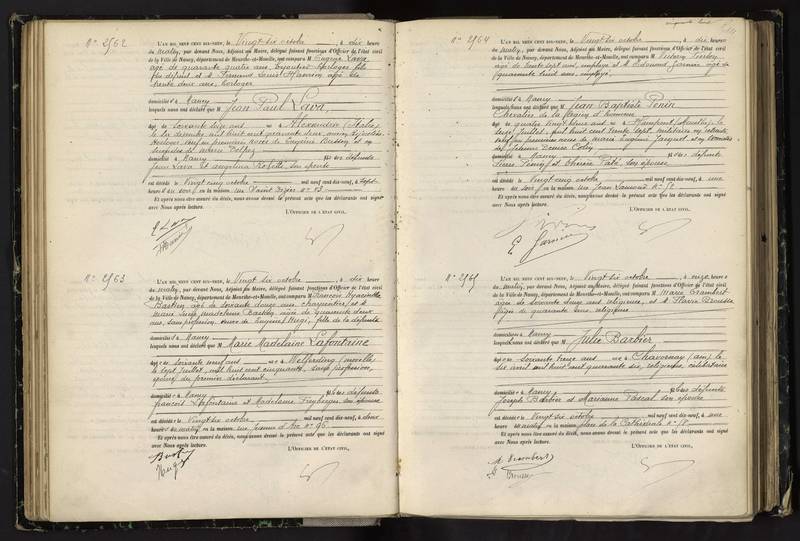 N° 2562
L'AN MIL NEUF CENT DIX-NEUF, le Vingt six octobre, à dix heures
du matin, par devant Nous, Adjoint au Maire, délégué faisant fonctions d'Officier de l'état civil
de la Ville de Nancy, département de Meurthe-et-Moselle, ont comparu M. Eugène Lava
âgé de quarante quatre ans, bijoutier horloger, fils
du défunt et M. Fernand Louis âgé de
trente deux ans, horloger
domiciliés à Nancy
lesquels nous ont déclaré que M. Jean Paul Lava,
âgé de soixante dix sept ans né à Alexandrie (Italie)
le mil huit cent quarante deux, ancien bijoutier
horloger, veuf en premières noces de Eugénie Busson et en
secondes de Marie
domicilié à Nancy fils des défunts
Jean Lava et Angelina Rosetti, son épouse
est décédé le Vingt cinq octobre mil neuf cent dix-neuf, à sept
heures du soir en la maison rue Saint Dizier n° 13
Et après nous être assuré du décès, nous avons dressé le présent acte que les déclarants ont signé
avec Nous après lecture.
L'OFFICIER DE L'ÉTAT CIVIL,
E Lava
N° 2563
L'AN MIL NEUF CENT DIX-NEUF, le Vingt six octobre, à dix heures
du matin, par devant Nous, Adjoint au Maire, délégué faisant fonctions d'Officier de l'état civil
de la Ville de Nancy, département de Meurthe-et-Moselle, ont comparu M. François Hyacinthe
Bastien âgé de soixante douze ans, charpentier, et M.
Marie Lucie Madeleine Bastien, âgée de quarante deux
ans, sans profession, veuve de Eugène Hugi, fille de la défunte
domiciliés à Nancy
lesquels nous ont déclaré que M. Marie Madeleine Lafontaine
âgée de soixante neuf ans née à Welferding (Moselle)
le sept juillet, mil huit cent cinquante, sans profession,
épouse du premier déclarant,
domiciliée à Nancy fille des défunts
François Lafontaine et Madeleine Freyberger, son épouse
est décédée le Vingt six octobre mil neuf cent dix-neuf, à deux
heures du matin en la maison rue Jeanne d'Arc n° 96
Et après nous être assuré du décès, nous avons dressé le présent acte que les déclarants ont signé
avec Nous après lecture.
L'OFFICIER DE L'ÉTAT CIVIL,
Hugi
N° 2564
L'AN MIL NEUF CENT DIX-NEUF, le Vingt six octobre, à dix heures
du matin, par devant Nous, Adjoint au Maire, délégué faisant fonctions d'Officier de l'état civil
de la Ville de Nancy, département de Meurthe-et-Moselle, ont comparu M. Victor
âgé de trente sept ans, employé et M. Edmond Garnier âgé de
quarante huit ans, employé,
domiciliés à Nancy
lesquels nous ont déclaré que M. Jean Baptiste Penin
Chevalier de la Légion d'honneur
âgé de quatre vingt deux ans né à (Moselle) le
seize juillet, mil huit cent trente sept, militaire en retraite
veuf en premières noces de Marie Jacquot et en secondes
de Louise Colin
domicilié à Nancy fils des défunts
Pierre Penin et Thérèse son épouse
est décédé le Vingt cinq octobre mil neuf cent dix-neuf, à une
heure du soir en la maison rue Jean Lamour n° 52
Et après nous être assuré du décès, nous avons dressé le présent acte que les déclarants ont signé
avec Nous après lecture.
L'OFFICIER DE L'ÉTAT CIVIL,
E Garnier
N° 2565
L'AN MIL NEUF CENT DIX-NEUF, le Vingt six octobre, à onze heures
du matin, par devant Nous, Adjoint au Maire, délégué faisant fonctions d'Officier de l'état civil
de la Ville de Nancy, département de Meurthe-et-Moselle, ont comparu M. Marie Crambert
âgée de soixante cinq ans religieuse, et M. Flavie
âgée de quarante ans religieuse
domiciliées à Nancy
lesquels nous ont déclaré que M. Julie Barbier
âgée de soixante treize ans née à Chavornay (Ain) le
six avril mil huit cent quarante six, religieuse, célibataire
domiciliée à Nancy fille des défunts
Joseph Barbier et Marianne Pascal son épouse
est décédée le Vingt six octobre mil neuf cent dix-neuf, à une
heure du matin en la maison place de la Cathédrale n° 18
Et après nous être assuré du décès, nous avons dressé le présent acte que les déclarants ont signé
avec Nous après lecture.
L'OFFICIER DE L'ÉTAT CIVIL,